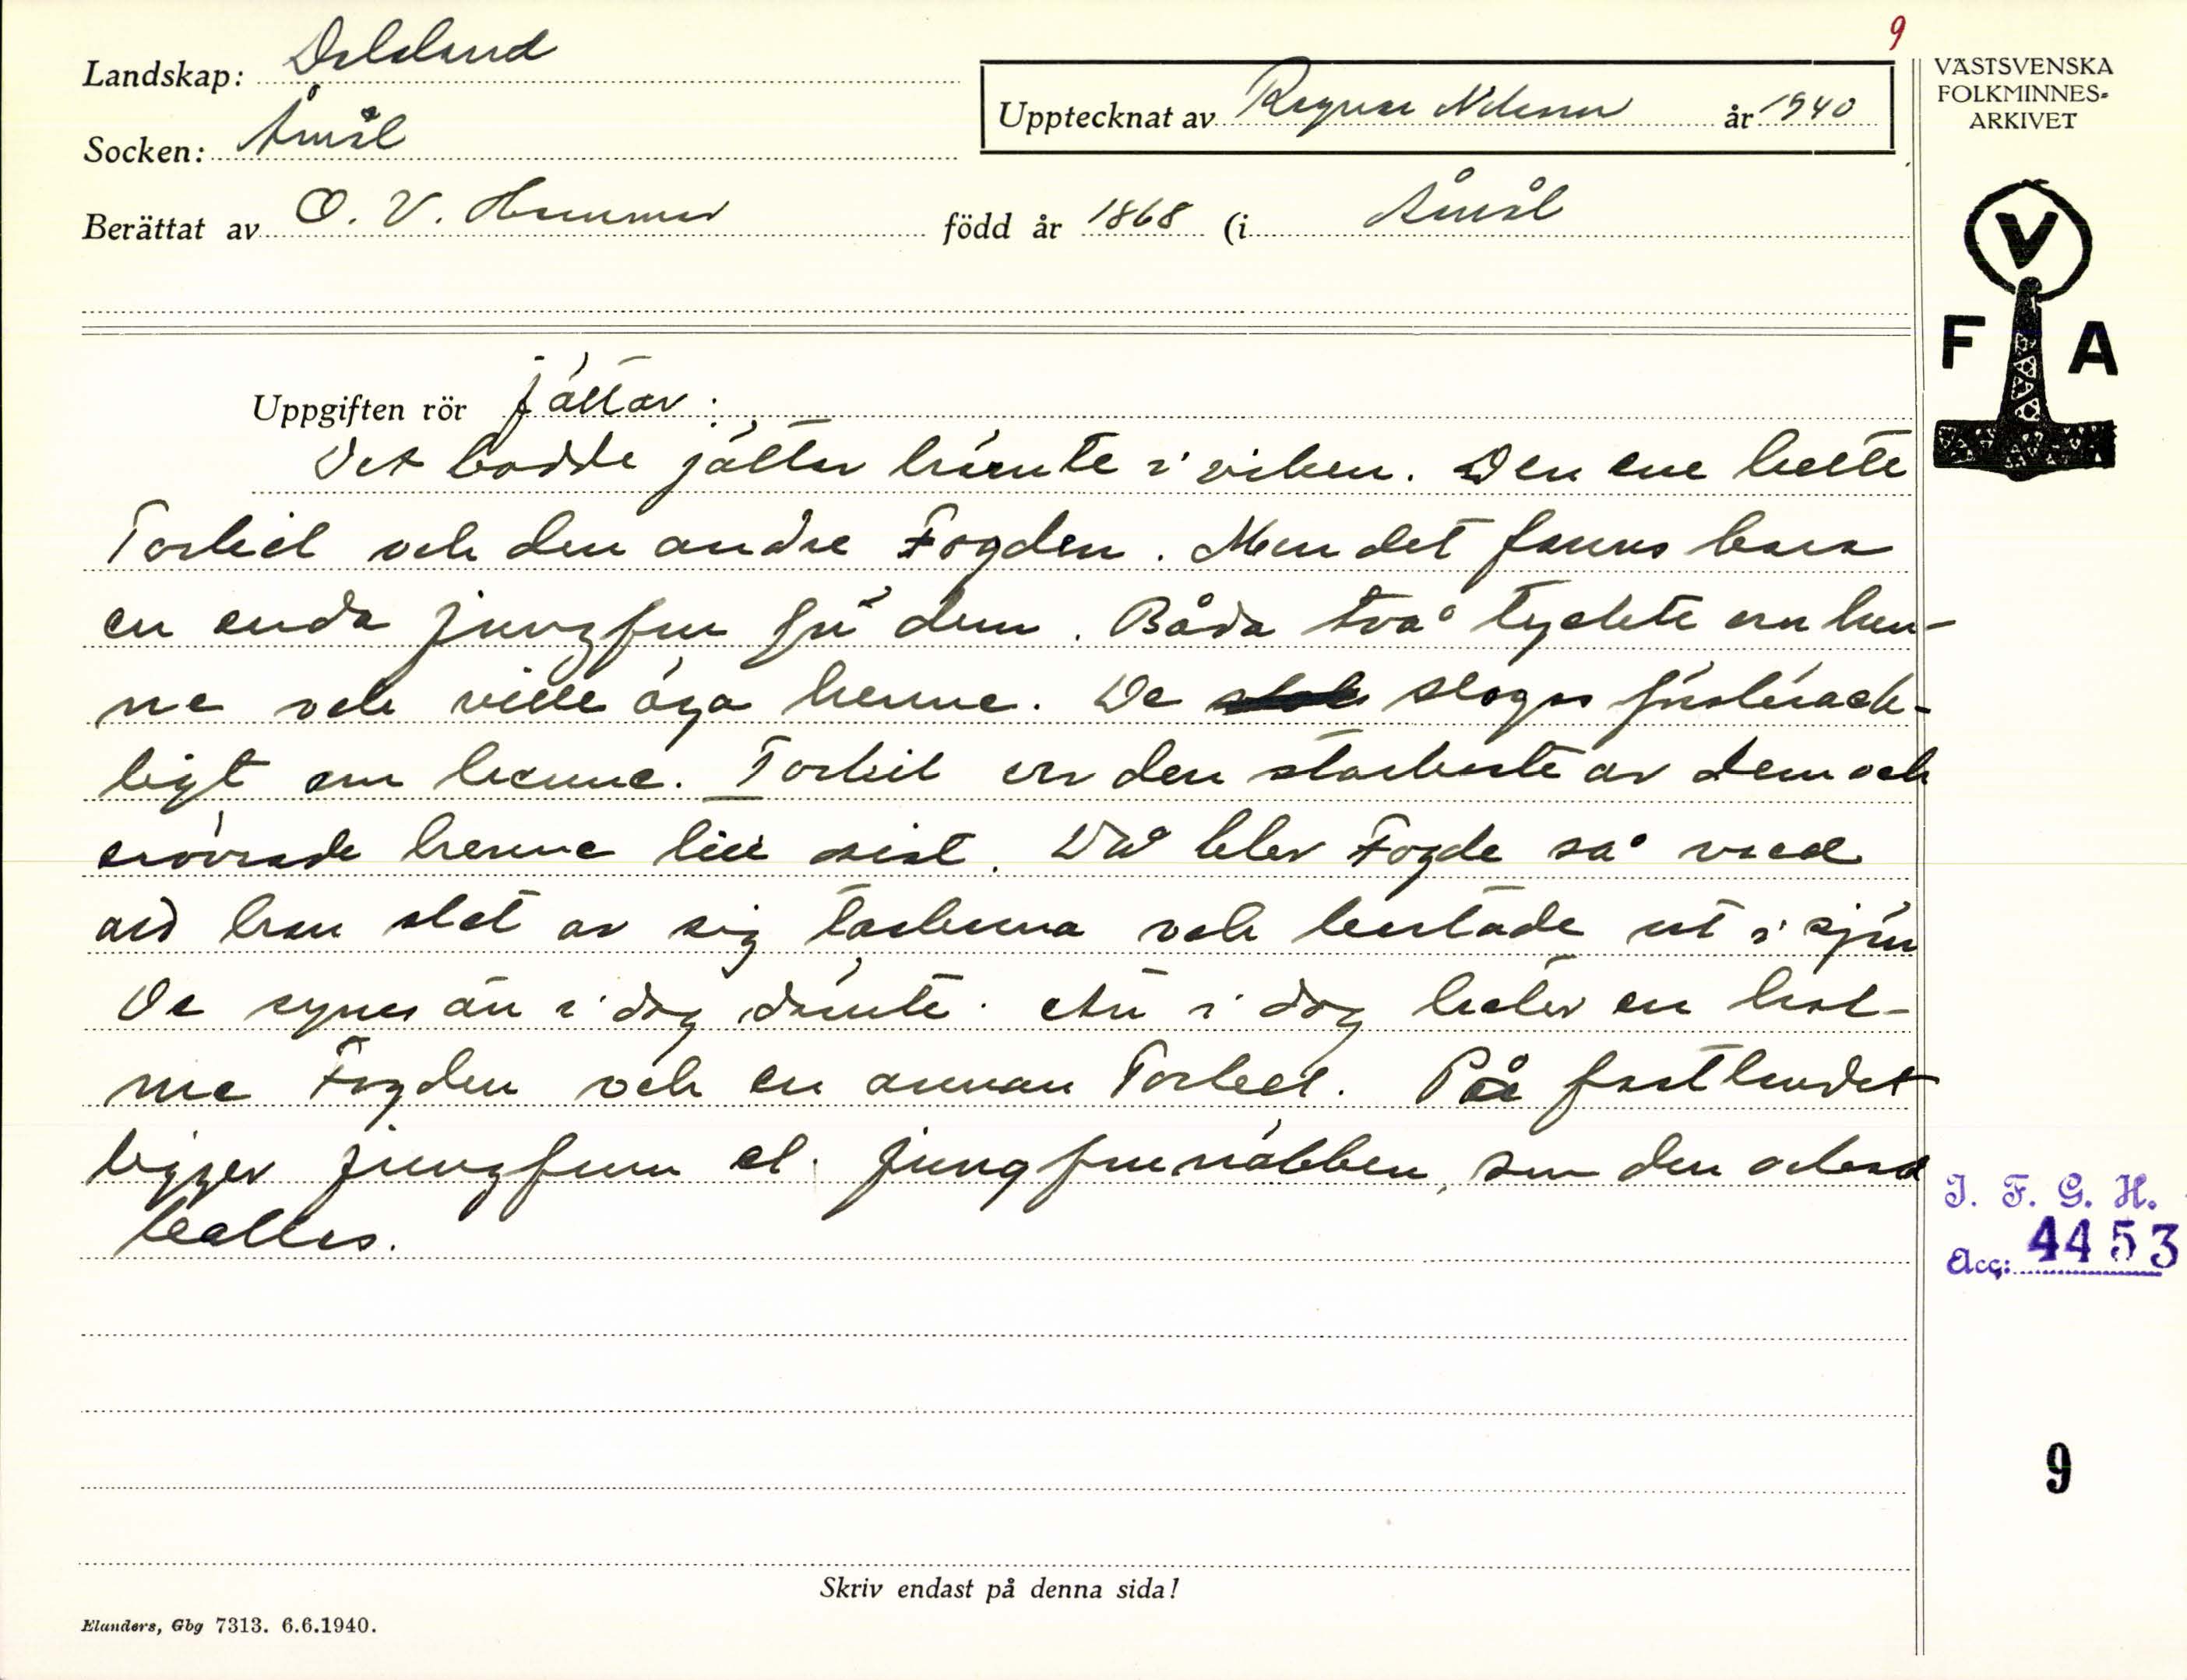 9
Landskap: Dalsland
Socken: Åmål
Berättat av O. V. Hammar född år 1868 (i Åmål
Upptecknat av Ragnar Nilsson år 1940
VÄSTSVENSKA
FOLKMINNES-
ARKIVET
V
F A
Uppgiften rör jättar:
Det bodde jättar härute i viken. Den ene hette
Torkel och den andre Fogden. Men det fanns bara
en enda jungfru för dem. Båda två tyckte om hen-
ne och ville äga henne. De slogos förskräck-
ligt om henne. Torkil var den starkaste av dem och
erövrade henne till sist. Då blev Fogde så vred
att han slet av sig tarmarna och kastade ut i sjön
De synes än i dag därute. Än i dag heter en hol-
me Fogden och en annan Torkel. På fastlandet
ligger jungfrun el. jungfrunäbben, som den också
kallas.
I. F. G. H.
Acc: 4453
9
Skriv endast på denna sida!
Elanders, Gbg 7313. 6.6.1940.